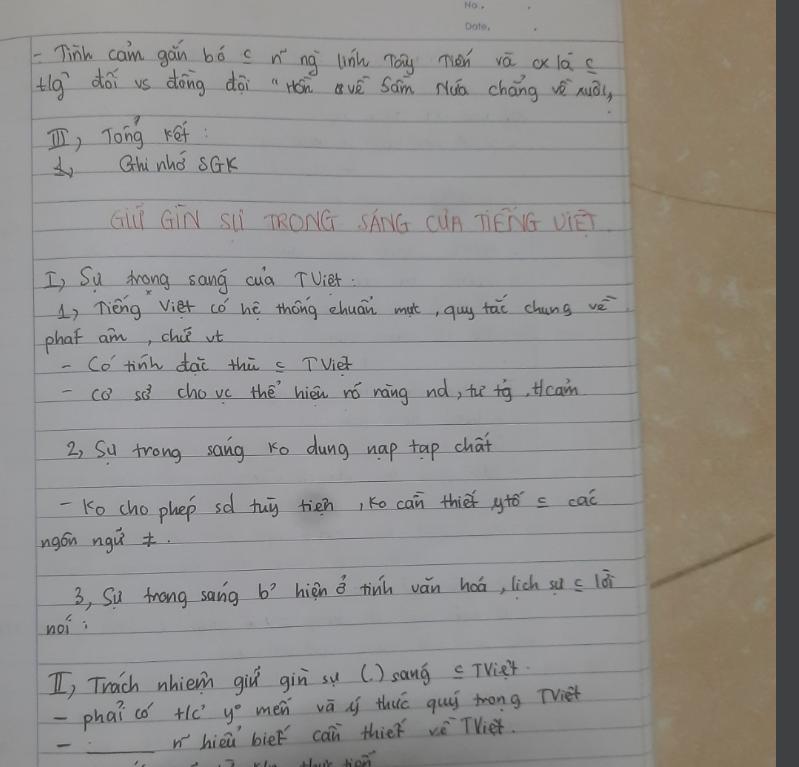 No.
Date.
- Tình cảm gắn bó c n~ ng lính Tây Tiến và
đối vs đồng đội "Hồn về Sầm Nứa chẳng về xuôi"
III, Tổng kết:
1, Ghi nhớ SGK
GIỮ GÌN SỰ TRONG SÁNG CỦA TIẾNG VIỆT.
I, Sự trong sáng của TViệt.
1, Tiếng Việt có hệ thống chuẩn mực, quy tắc chung về
phát âm, chữ vt
- Có tính đặc thù c TViệt
- cơ sở cho vc thể hiện rõ ràng nd, tư tg, t/cảm
2, Sự trong sáng ko dung nạp tạp chất
- Ko cho phép sd tuỳ tiện, ko cần thiết ytố c các
ngôn ngữ ≠.
3, Sự trong sáng b' hiện ở tính văn hoá, lịch sự c lời
nói:
II, Trách nhiệm giữ gìn sự (.) sáng c TViệt.
- phải có t/c' yº mến và ý thức quý trọng TViệt
- ______ n~ hiểu biết cần thiết về TViệt.